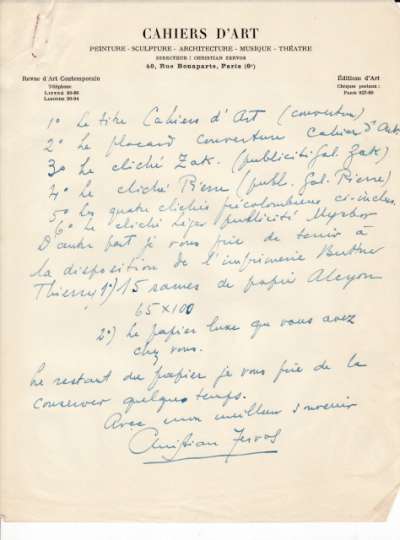 CAHIERS D'ART
PEINTURE - SCULPTURE - ARCHITECTURE - MUSIQUE - THÉATRE
DIRECTEUR : CHRISTIAN ZERVOS
40, Rue Bonaparte, Paris (6e)
Revue d'Art Contemporain
Téléphone
Éditions d'Art
Chèques postaux :
1° Le titre Cahiers d'Art (couverture)
2° Le placard couverture Cahier d'Art
3° Le cliché Zak. (publicité Gal. Zak)
4° Le cliché Pierre (publ. Gal. Pierre)
5° Les quatre clichés précolombiens ci-inclus
6° Le cliché Léger publicité Myrbor
D'autre part je vous prie de tenir à
la disposition de l'imprimerie
Thierry 1°) 15 rames de papier Alcyon
65 x 100
2°) Le papier luxe que vous avez
chez vous.
Le restant du papier je vous prie de la
conserver quelques temps.
Avec mon meilleur souvenir
Christian Zervos